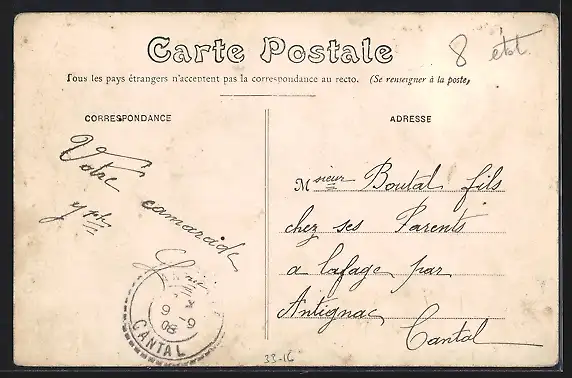 Carte Postale
8 état.
Tous les pays étrangers n'acceptent pas la correspondance au recto. (Se renseigner à la poste)
CORRESPONDANCE
Votre
camarade
ADRESSE
Msieur Boutal fils
chez ses Parents
a lafage par
Antignac
Cantal
9-9
08
CANTAL
33-16